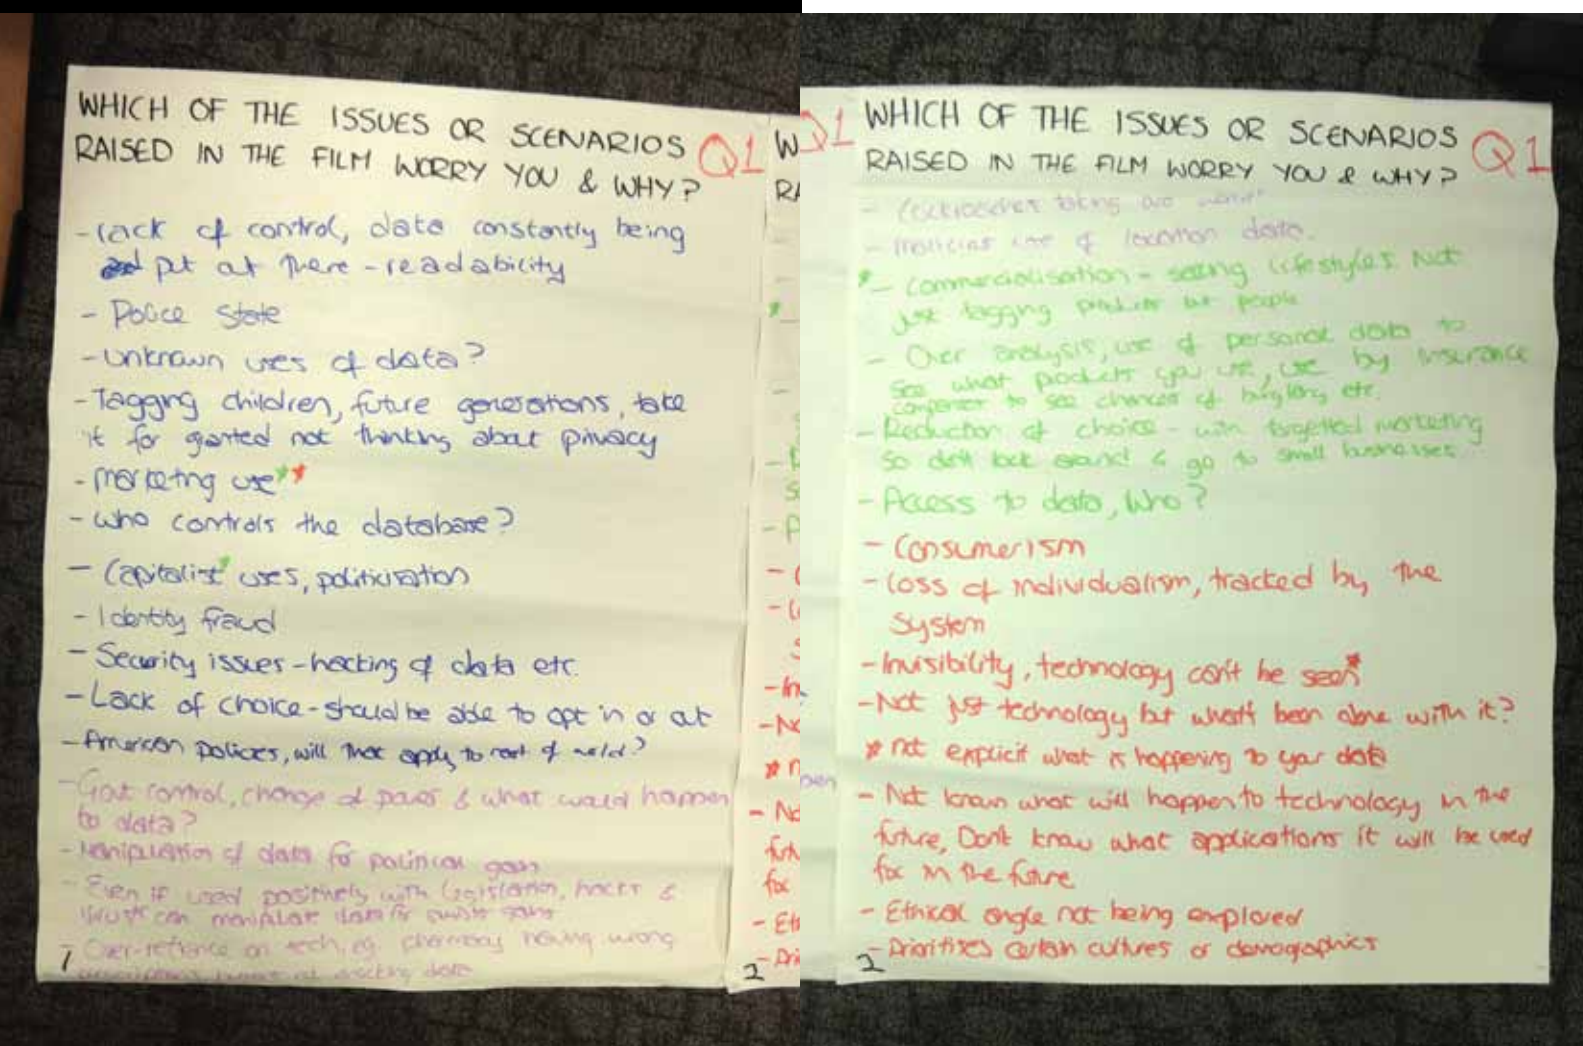 WHICH OF THE ISSUES OR SCENARIOS
RAISED IN THE FILM WORRY YOU & WHY?
Q1
- Lack of control, data constantly being
put out there - readability
- Police State
- Unknown uses of data?
- Tagging children, future generations, take
it for granted not thinking about privacy
- Marketing use**
- Who controls the database?
- Capitalist* uses, politicisation
- Identity fraud
- Security issues - hacking of data etc.
- Lack of choice - should be able to opt in or out
- American policies, will that apply to rest of world?
- Govt control, change of power & what would happen
to data?
- Manipulation of data for political gain
- Even if used positively with legislation, hacks &
can manipulate data for
- Over-reliance on tech, eg. having wrong
data
1
WHICH OF THE ISSUES OR SCENARIOS
RAISED IN THE FILM WORRY YOU & WHY?
Q1
- Cockroaches taking
- Malicious use of location data.
*- Commercialisation - selling lifestyles. Not
just tagging products but people
- Over analysis, use of personal data to
see what products you use, use by insurance
companies to see chances of burglary etc.
- Reduction of choice - with targetted marketing
so don't look around & go to small businesses.
- Access to data, Who?
- Consumerism
- Loss of individualism, tracked by the
System
- Invisibility, technology can't be seen*
- Not just technology but what's been done with it?
* not explicit what is happening to your data
- Not known what will happen to technology in the
future, Don't know what applications it will be used
for in the future
- Ethical angle not being explored
- Prioritises certain cultures or demographics
2